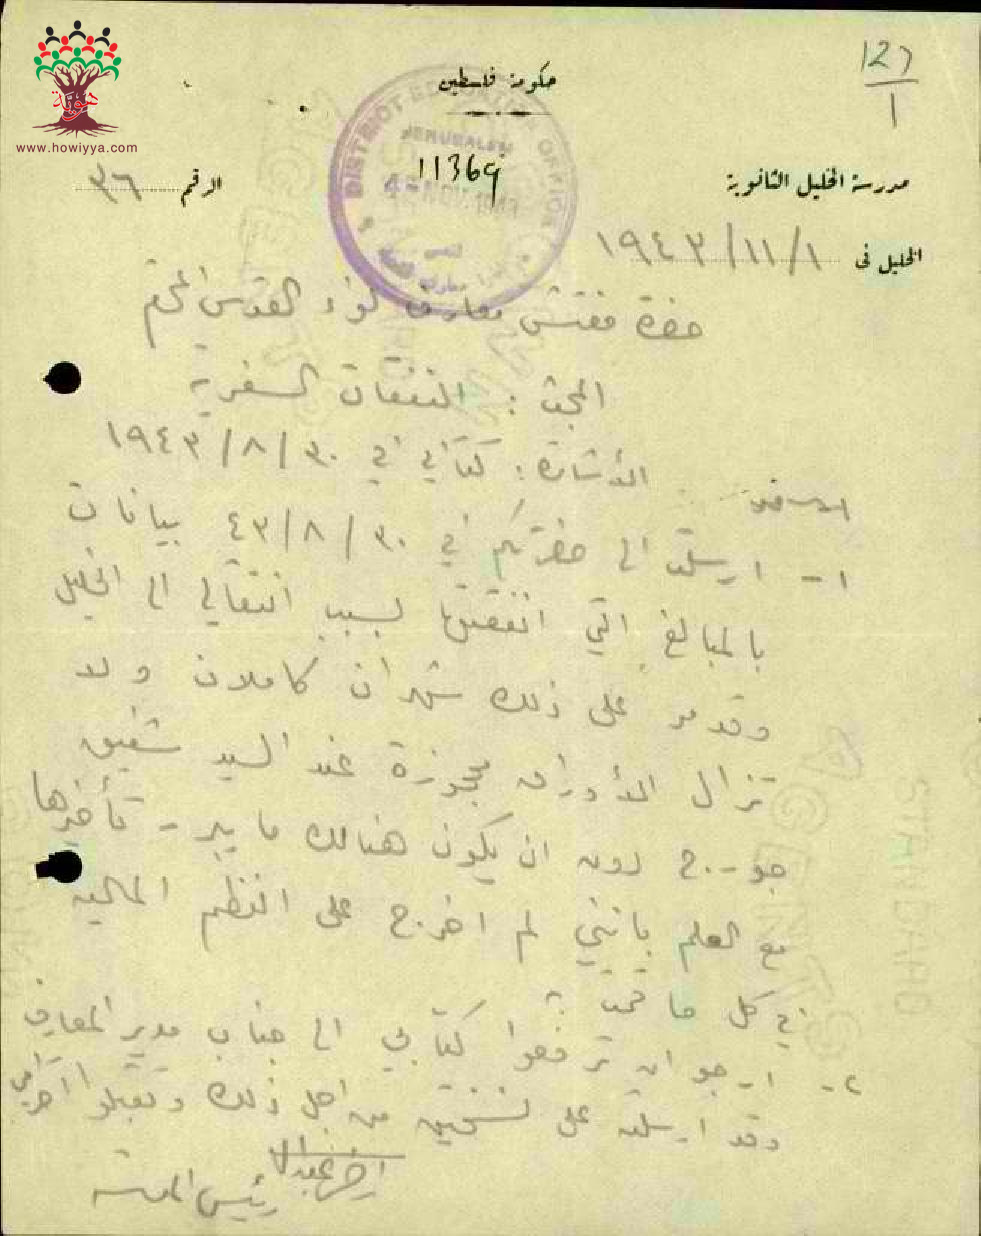 هوية
www.howiyya.com
127
1
حكومة فلسطين
DISTRICT EDUCATION OFFICE
JERUSALEM
NOV. 1943
11369
مدرسة الخليل الثانوية
الرقم ٣٦
الخليل فى ١/١١/١٩٤٣
حضرة مفتش معارف لواء القدس المحترم
المبحث : النفقات السفرية
الأشارة : كتابي في ٣٠/٨/١٩٤٣
١- ارسلت الى حضرتكم في ٣٠/٨/٤٣ بيانات
بالمبالغ التي انفقتها بسبب انتقالي الى الخليل
وقد مر على ذلك شهران كاملان ولا
تزال الأوراق محجوزة عند السيد شفيق
جورج دون ان يكون هنالك ما يبرر تأخيرها
مع العلم بانني لم اخرج على النظم المالية
في كل ما قمت به
٢- ارجو ان ترفعوا كتابي الى جناب مدير المعارف
وقد ارسلته على نسختين من اجل ذلك وتقبلوا احترامي
رئيس المدرسة
STANDARD